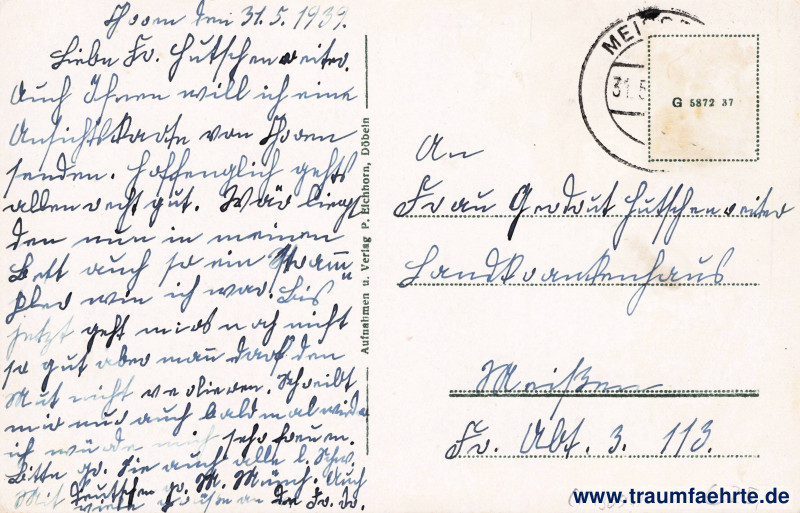 Horn den 31.5.1939.
Liebe Fr. Hutschenreiter.
Auch Ihnen will ich eine
Ansichtskarte von Horn
senden. Hoffenglich gehts
allen recht gut. Wär liegt
den nun in meinen
Bett auch so ein Stramm
pler wie ich war. Bis
jetzt geht mirs noch nicht
so gut aber man darf den
Mut nicht verlieren. Schreibt
mir nur auch bald mal wieder
ich würde mich sehr freuen.
Bitte gr. Sie auch alle l. Schw.
Mit gr. M. Münch. Auch
viele Grüße an Fr. Dr.
Aufnahmen u. Verlag P. Eichhorn, Döbeln
31.5
G 5872 37
An
Frau Gertrut Hutschenreiter
Landkrankenhaus
Meißen
Fr. Abt. 3. 113.
www.traumfaehrte.de